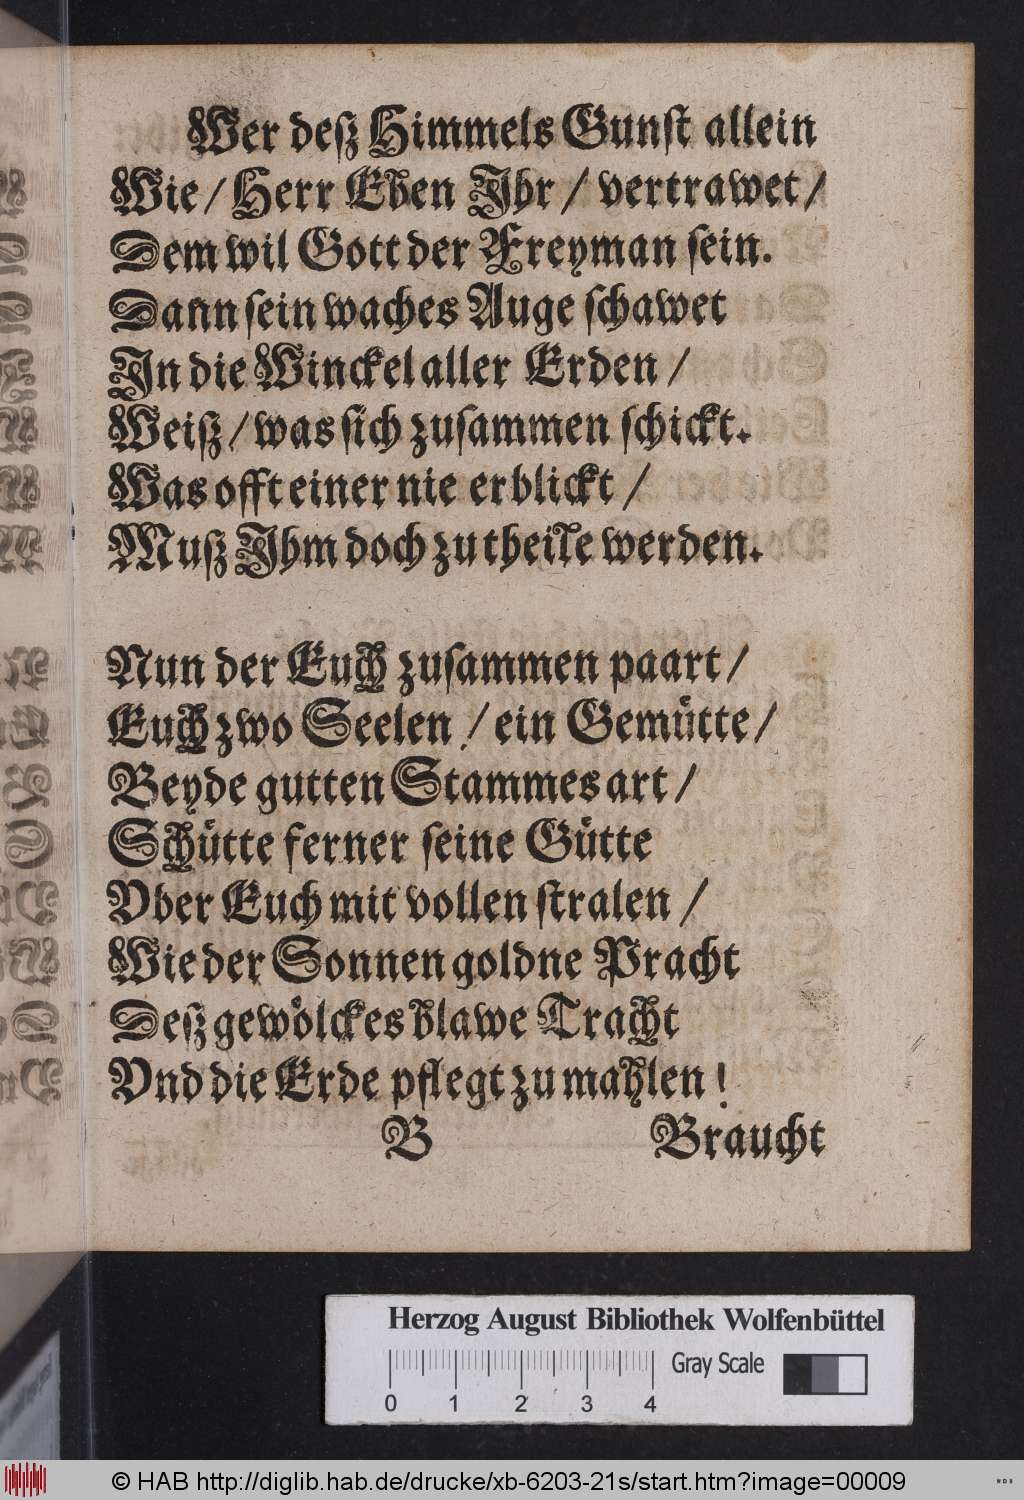 Wer deß Himmels Gunst allein
Wie / Herr Eben Ihr / vertrawet /
Dem wil Gott der Freyman sein.
Dann sein waches Auge schawet
In die Winckel aller Erden /
Weiß / was sich zusammen schickt.
Was offt einer nie erblickt /
Muß Ihm doch zu theile werden.
Nun der Euch zusammen paart /
Euch zwo Seelen / ein Gemütte /
Beyde gutten Stammes art /
Schütte ferner seine Gütte
Vber Euch mit vollen stralen /
Wie der Sonnen goldne Pracht
Deß gewölckes blawe Tracht
Vnd die Erde pflegt zu mahlen !
B Braucht
Herzog August Bibliothek Wolfenbüttel
Gray Scale
0 1 2 3 4
© HAB http://diglib.hab.de/drucke/xb-6203-21s/start.htm?image=00009